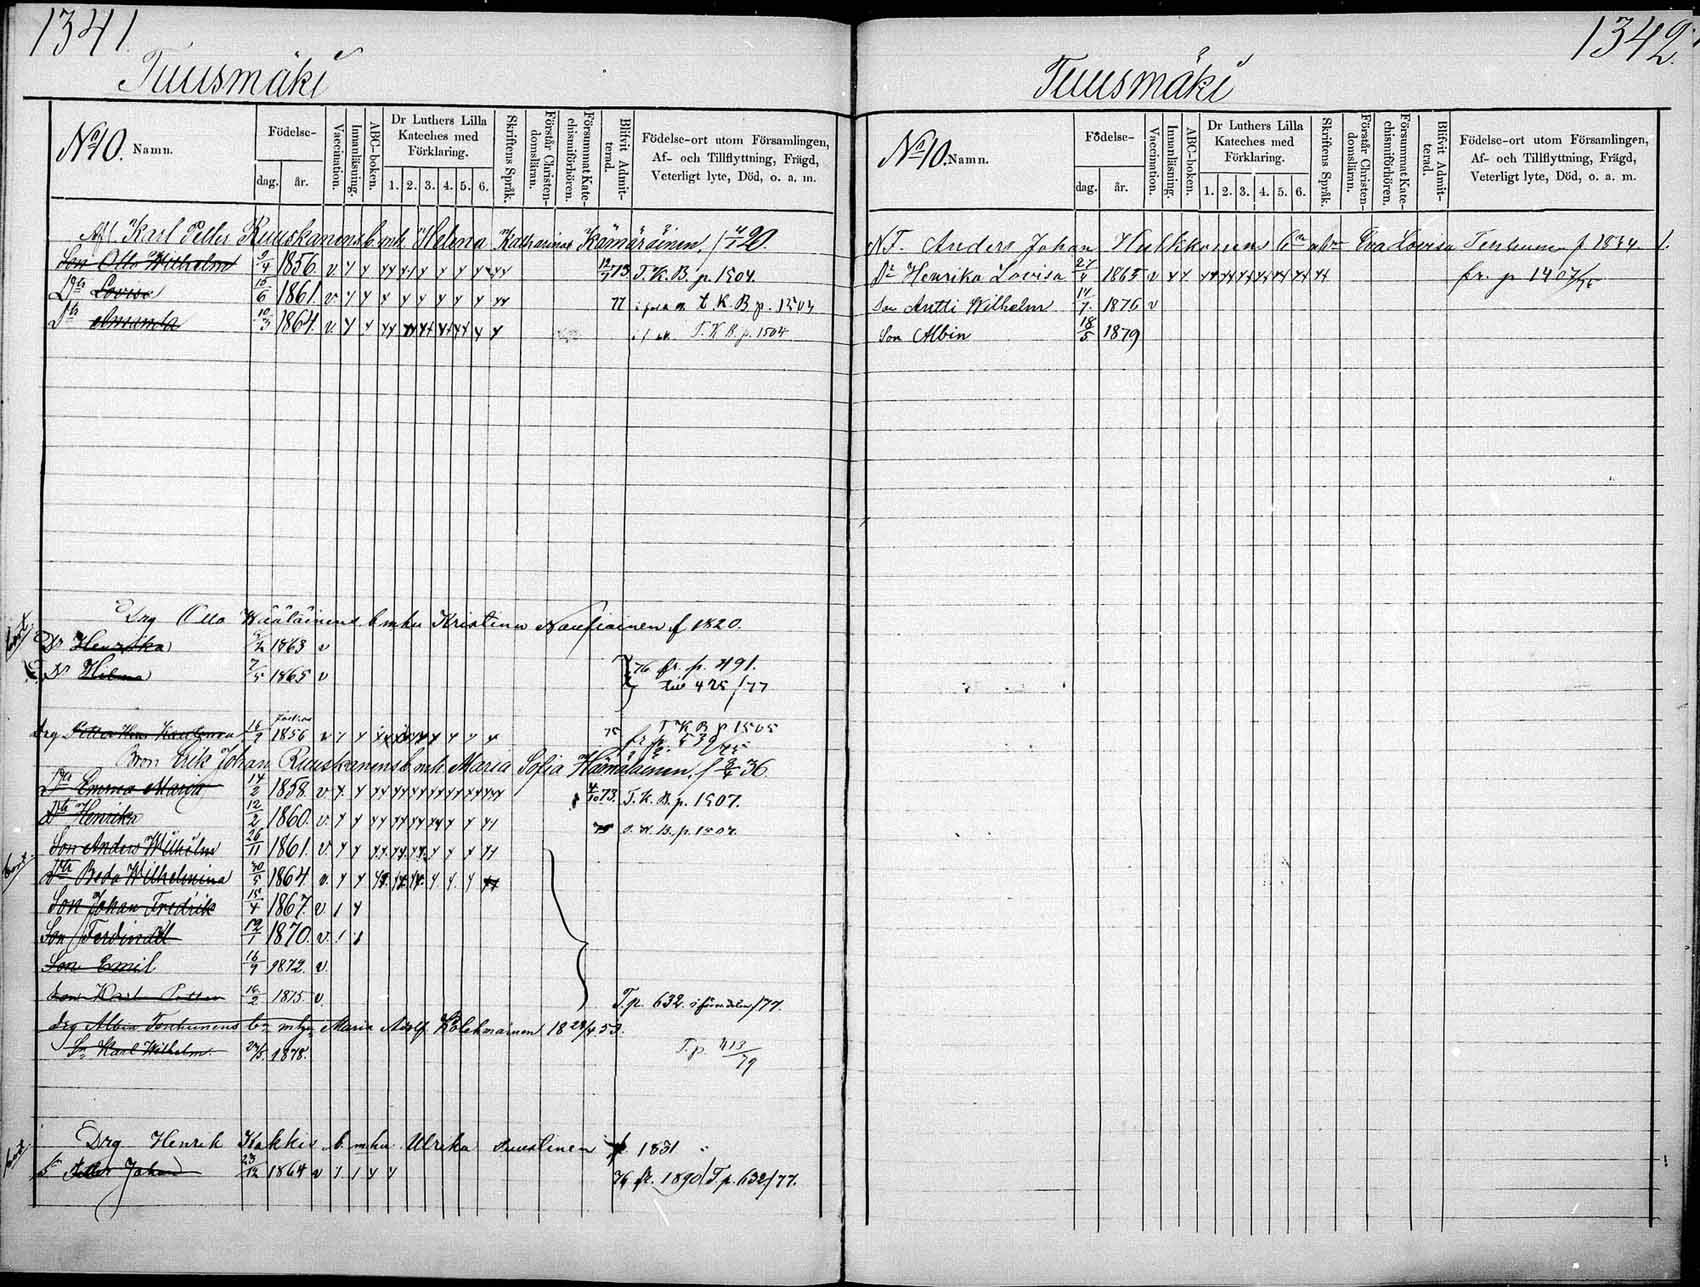 1341.
Tuusmäki
No 10. Namn.
Födelse-
dag.
år.
Vaccination.
Innanläsning.
ABC-boken.
Dr Luthers Lilla Kateches med Förklaring.
1. 2. 3. 4. 5. 6.
Skriftens Språk.
Förstår Christendomsläran.
Försummat Katechismiförhören.
Blifvit Admitterad.
Födelse-ort utom Församlingen, Af- och Tillflyttning, Frägd, Veterligt lyte, Död, o. a. m.
Karl Petter Ruuskanens b mh Helena Katharina Hämäräinen, f 20.
Son Otto Wilhelm 1856. v 12/7 73 T. K. B. p. 1504.
Dtr Lovisa 10/6 1861. v 77 t. K. B p. 1504
Dtr Amanda 10/3 1864. v T. K B. p. 1504
Drg Otto Wäläinens b mhu Kristina f 1820.
Dr Henrika 1863 v
Dr Hilma 7/5 1865 v
76 fr. p. 491.
till 425/77
Drg 16/9 1856 v 75 T K B p 1505
Erik Johan Ruuskanens b mh Maria Sofia Hämäläinen, f 36
Dtr Emma Maria 14/2 1858. v 4/10 73. T. K. B. p. 1507.
Dtr Henrika 12/2 1860. v. p. 1507.
Son Anders Wilhelm 26/11 1861. v
Dtr Beda Wilhelmina 30/5 1864 v.
Son Johan Fredrik 15/4 1867. v
Son Ferdinand 1870. v.
Son Emil 16/9 1872. v.
Son Karl Petter 16/2 1875 v T. p. 632. /77.
Drg Albin Tenhunens b mhu Maria Adolf. Kolehmainen 18 53.
Sn Karl Wilhelm. 27/5. 1878. T. p. 413/79
Drg Henrik Kakkis b mhu Ulrika Puustinen f 1831
Petter Johan 23/12 1864 v 76 fr. 1890 T. p. 632/77.
1342.
Tuusmäki
No 10. Namn.
Födelse-
dag.
år.
Vaccination.
Innanläsning.
ABC-boken.
Dr Luthers Lilla Kateches med Förklaring.
1. 2. 3. 4. 5. 6.
Skriftens Språk.
Förstår Christendomsläran.
Försummat Katechismiförhören.
Blifvit Admitterad.
Födelse-ort utom Församlingen, Af- och Tillflyttning, Frägd, Veterligt lyte, Död, o. a. m.
Anders Johan Hulkkonens Eva Lovisa Tenhunen f 1834
Dr Henrika Lovisa 27/4 1863 v fr. p 1407/76
Son Antti Wilhelm 14/7. 1876 v
Son Albin 18/5 1879